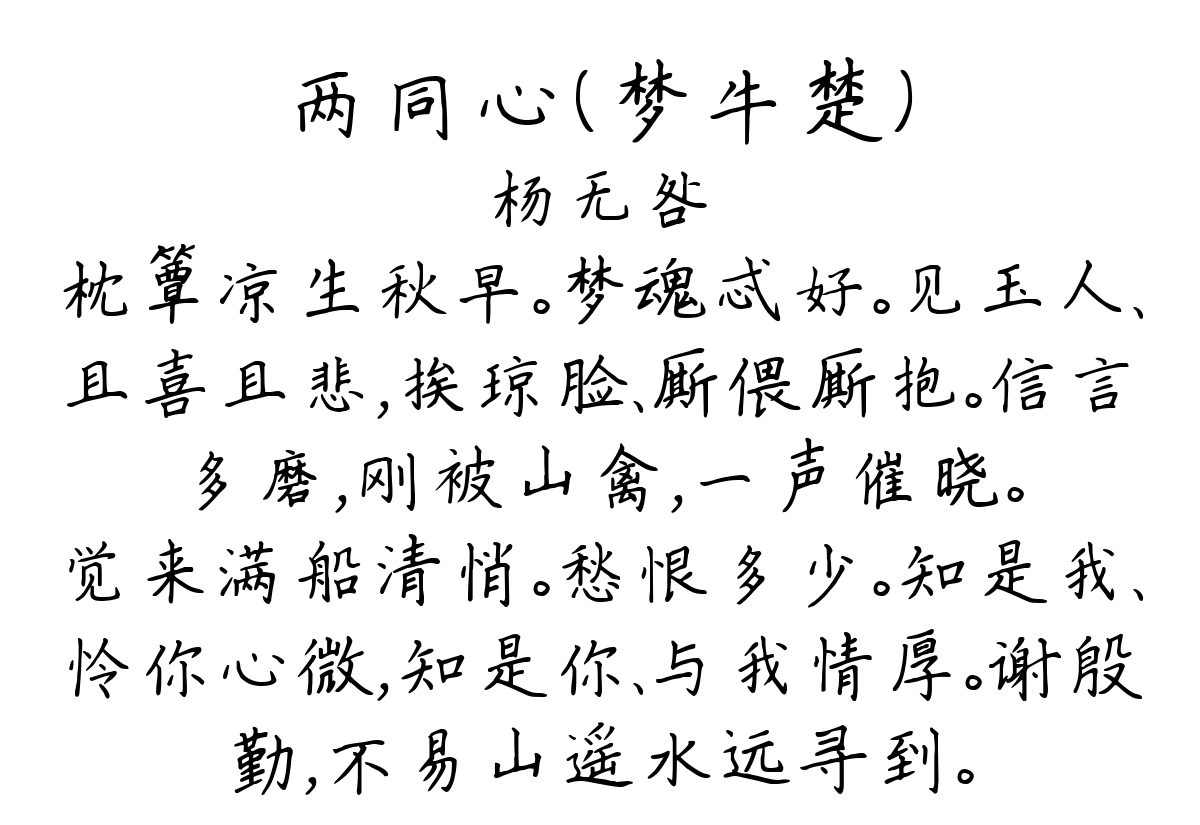 两同心(梦牛楚)
杨无咎
枕簟凉生秋早。梦魂忒好。见玉人、
且喜且悲,挨琼脸、厮偎厮抱。信言
多磨,刚被山禽,一声催晓。
觉来满船清悄。愁恨多少。知是我、
怜你心微,知是你、与我情厚。谢殷
勤,不易山遥水远寻到。